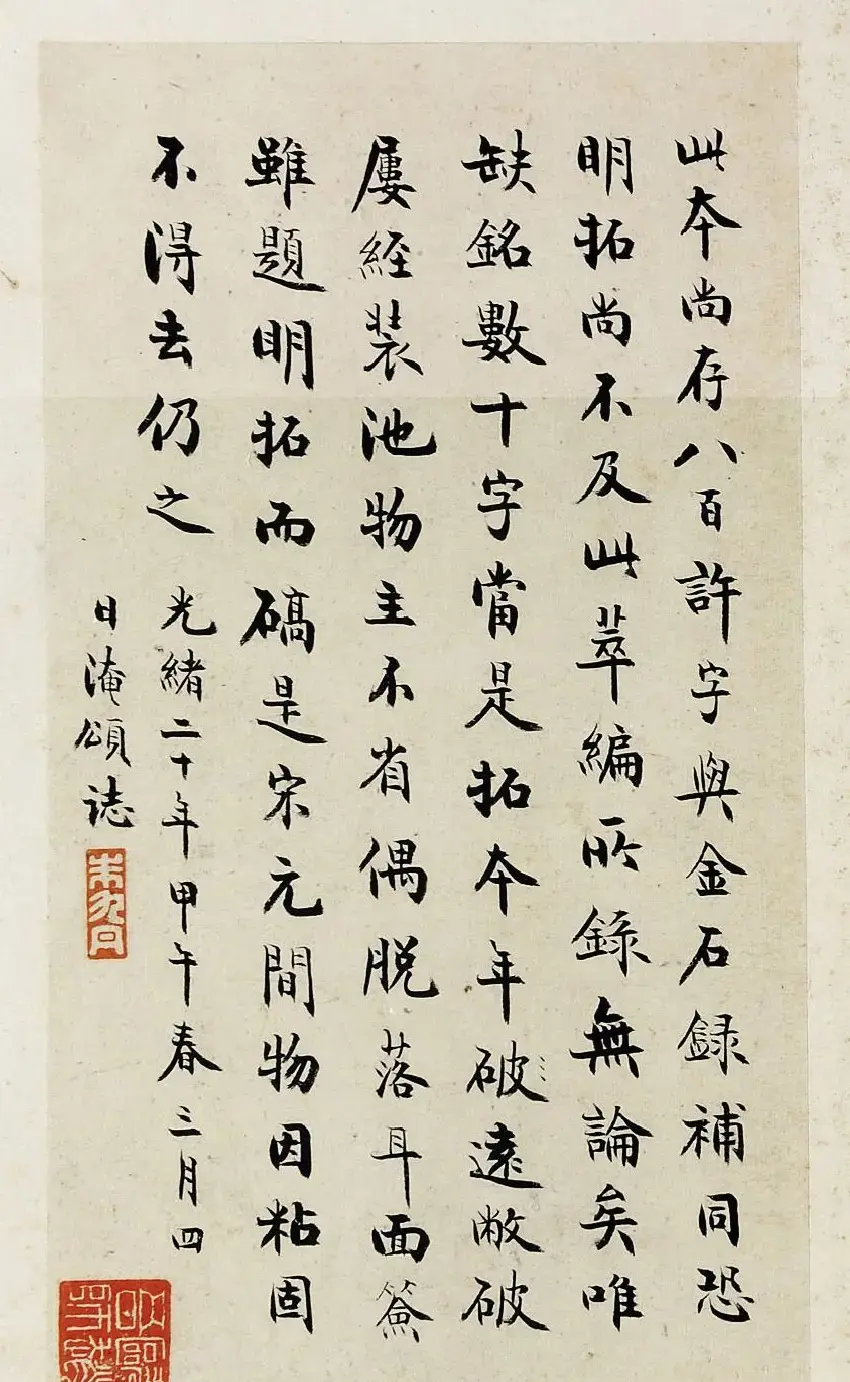 此本尚存八百許字與金石録補同恐
明拓尚不及此萃編所錄無論矣唯
缺銘數十字當是拓本年破遠敝破
屢經装池物主不省偶脱落耳面簽
雖題明拓而碻是宋元間物因粘固
不得去仍之
光緒二十年甲午春三月四
日淹頌誌